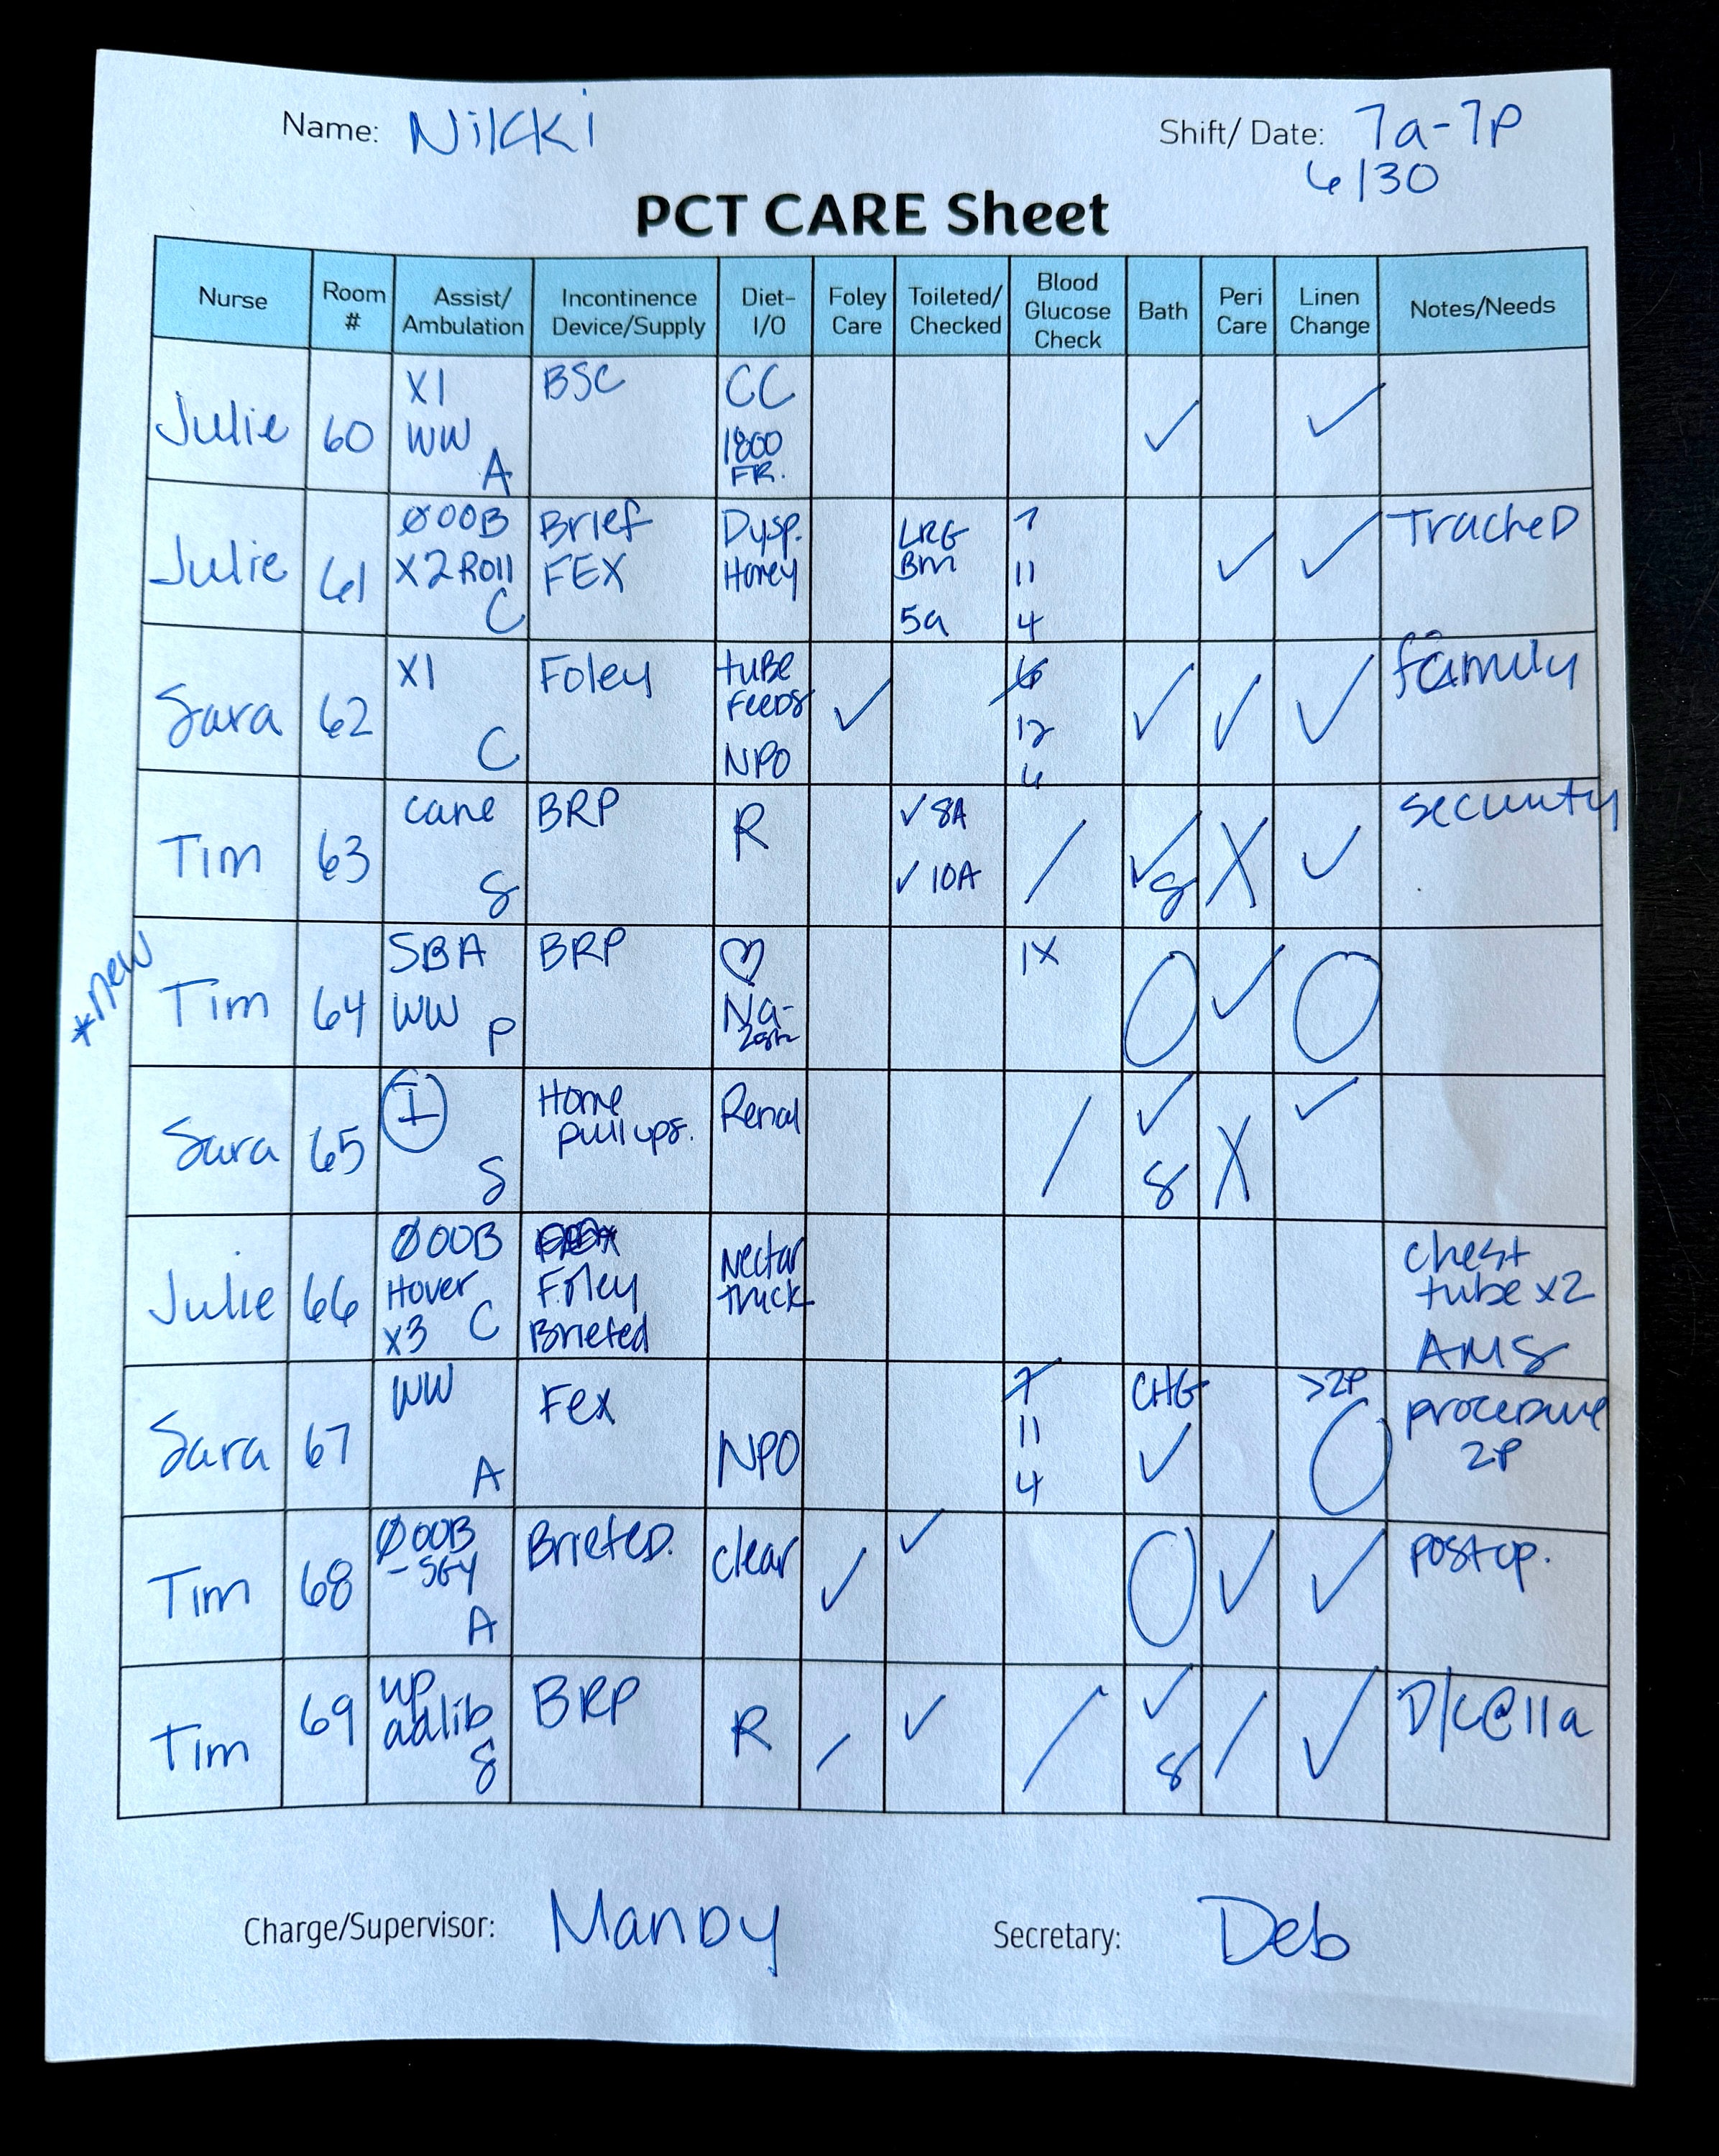 Name: Nikki Shift/ Date: 7a-7p
6/30
PCT CARE Sheet
Nurse Room # Assist/ Ambulation Incontinence Device/Supply Diet- I/O Foley Care Toileted/ Checked Blood Glucose Check Bath Peri Care Linen Change Notes/Needs
Julie 60 X1 WW A BSC CC 1800 FR. ✓ ✓
Julie 61 ØOOB X2 Roll C Brief FEX Dysp. Honey LRG Bm 5a 7 11 4 ✓ ✓ TracheD
Sara 62 X1 C Foley tube Feeds NPO ✓ 6 12 6 ✓ ✓ ✓ family
Tim 63 cane S BRP R ✓ 8A ✓ 10A / ✓ S X ✓ security
*new Tim 64 SBA WW P BRP ♡ Na- 2gm 1X O ✓ O
Sara 65 I S Home pullups. Renal / ✓ S X ✓
Julie 66 ØOOB Hover x3 C Foley Briefed Nectar thick chest tube x2 AMS
Sara 67 WW A Fex NPO 7 11 4 CHG ✓ >2P O procedure 2P
Tim 68 ØOOB - SGY A BriefeD. clear ✓ ✓ O ✓ ✓ postop.
Tim 69 up adlib S BRP R / ✓ / ✓ S / ✓ D/c@11a
Charge/Supervisor: ManDy Secretary: Deb